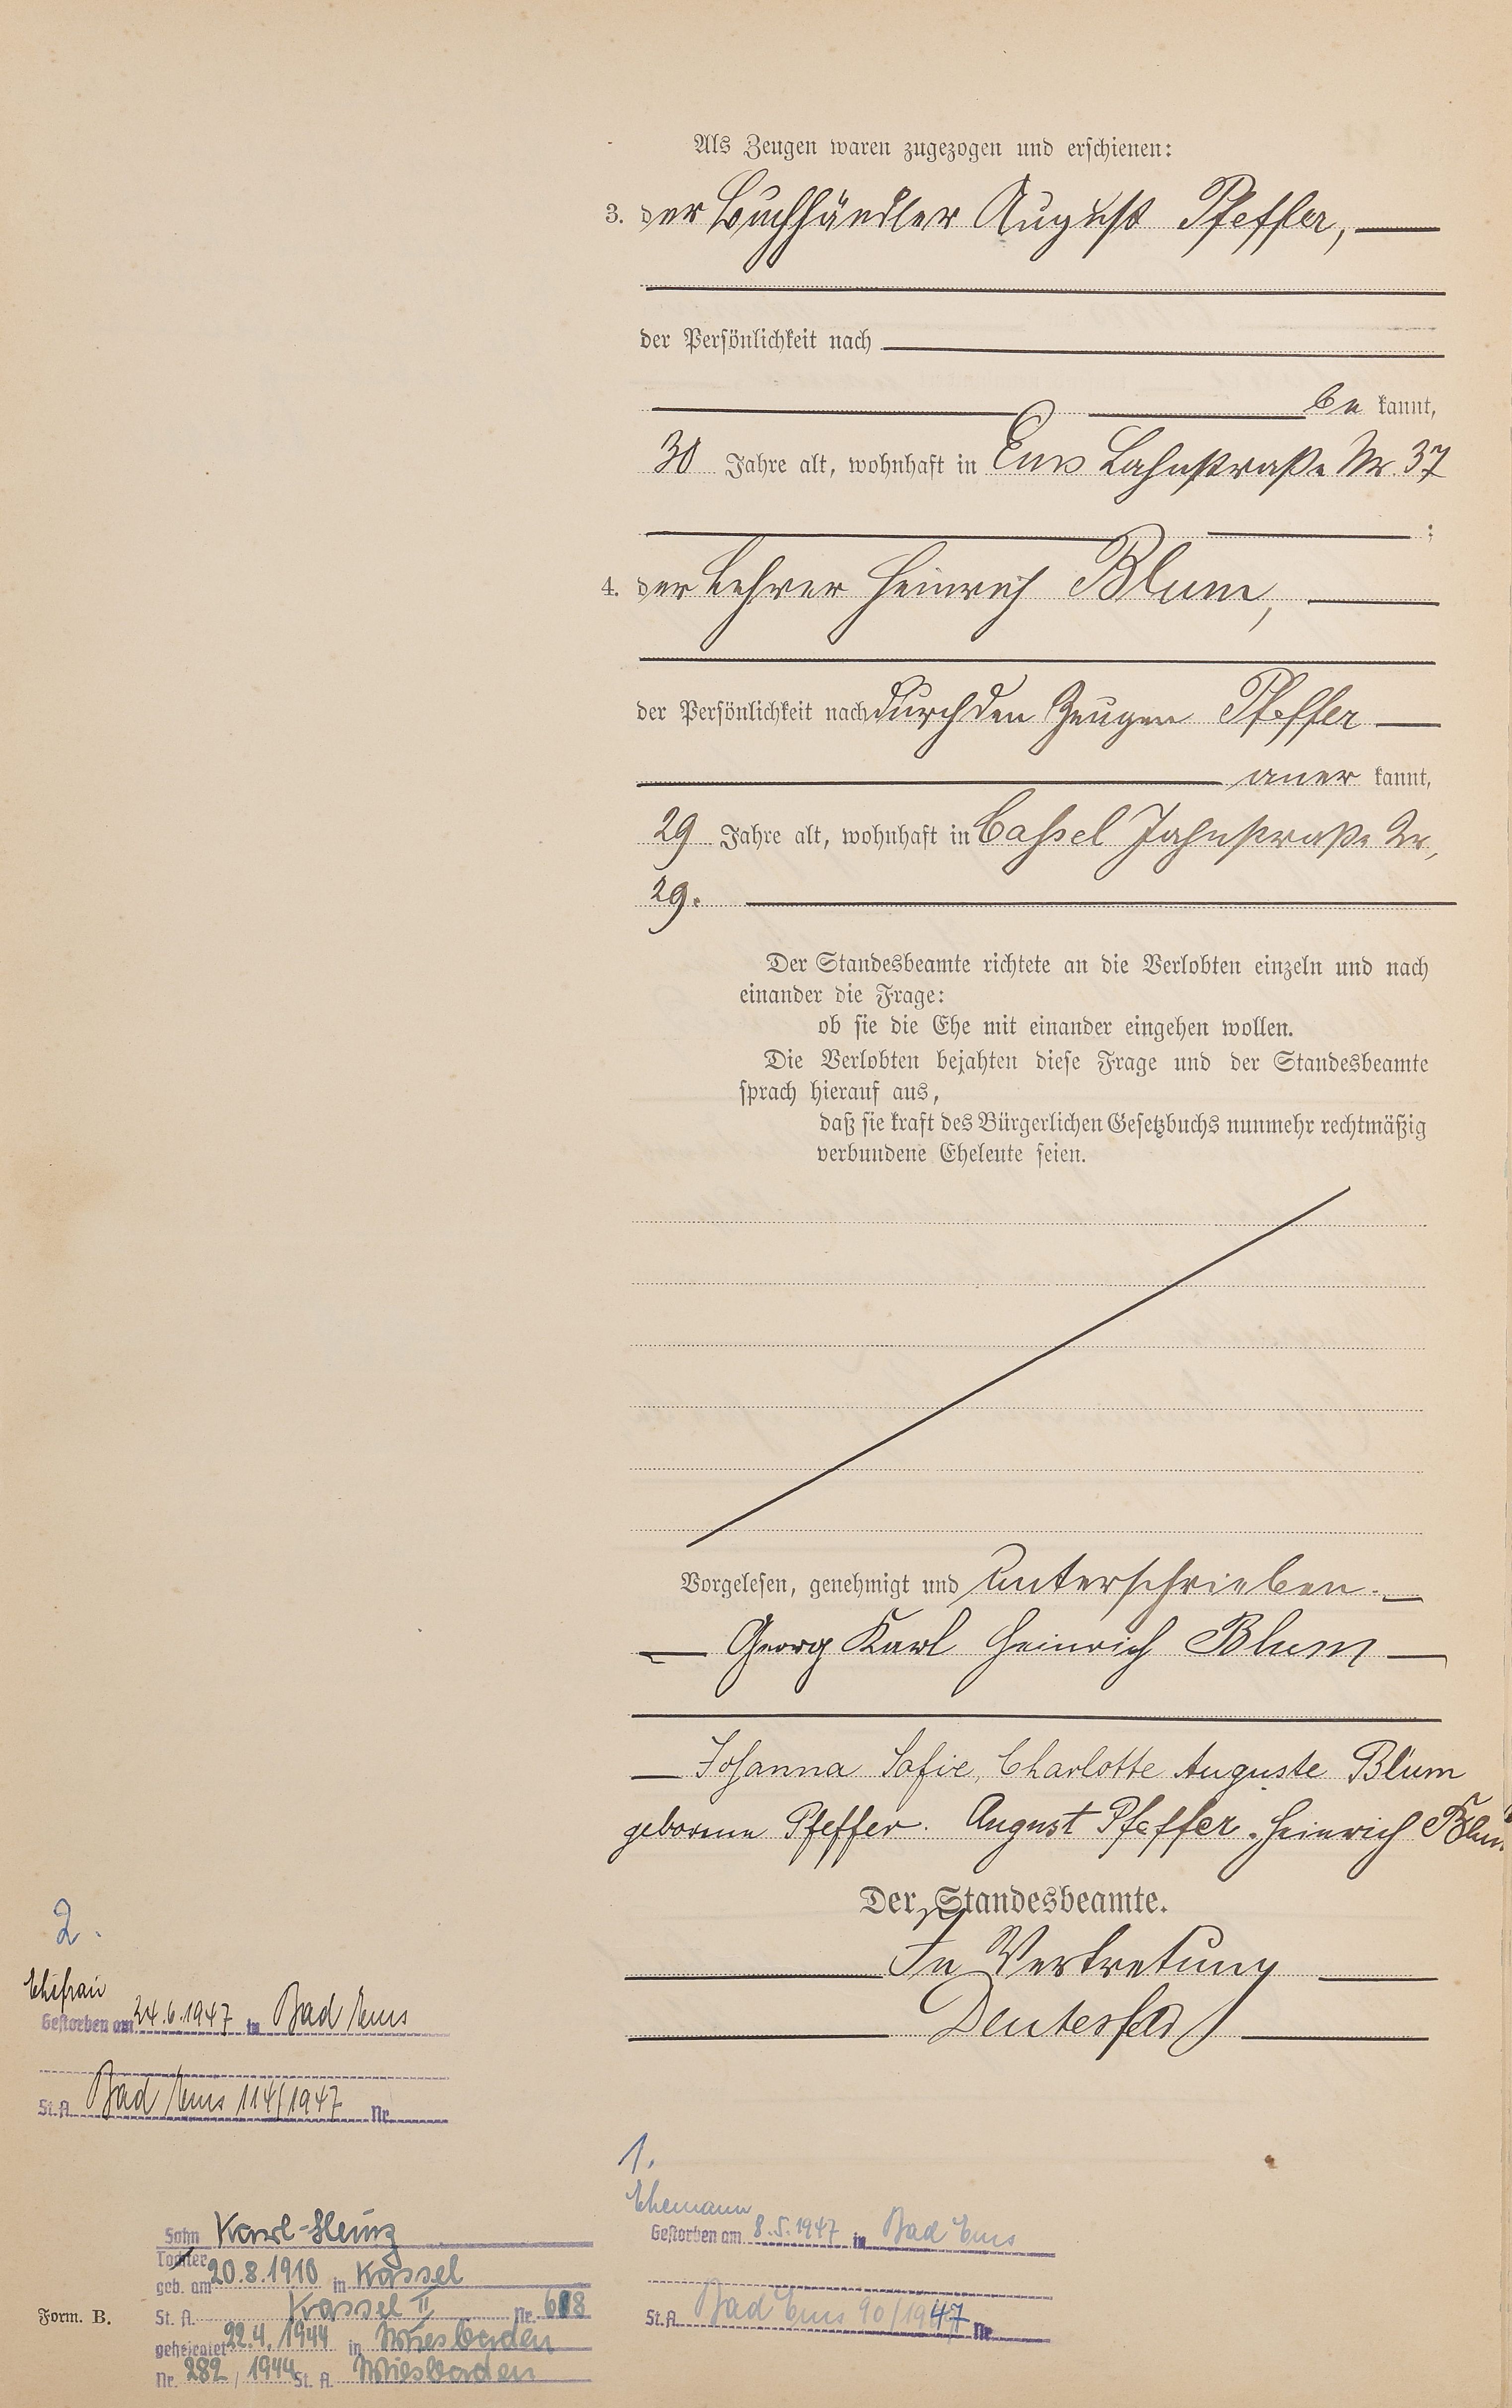 Als Zeugen waren zugezogen und erschienen:
3. der Buchhändler August Pfeffer,
der Persönlichkeit nach
be kannt,
30 Jahre alt, wohnhaft in Ems Lahnstraße Nr. 37
;
4. der Lehrer Heinrich Blum,
der Persönlichkeit nach durch den Zeugen Pfeffer
aner kannt,
29 Jahre alt, wohnhaft in Cassel Jahnstraße Nr.
29.
Der Standesbeamte richtete an die Verlobten einzeln und nach
einander die Frage:
ob sie die Ehe mit einander eingehen wollen.
Die Verlobten bejahten diese Frage und der Standesbeamte
sprach hierauf aus,
daß sie kraft des Bürgerlichen Gesetzbuchs nunmehr rechtmäßig
verbundene Eheleute seien.
Vorgelesen, genehmigt und unterschrieben.
Georg Karl Heinrich Blum
Johanna Sofie, Charlotte Auguste Blum
geborene Pfeffer. August Pfeffer. Heinrich Blum
Der Standesbeamte.
In Vertretung
Deutesfeld
2.
Ehefrau
Gestorben am 24.6.1947 in Bad Ems
St. A. Bad Ems 114/1947 Nr.
1.
Ehemann
Gestorben am 8.5.1947 in Bad Ems
St. A. Bad Ems 90/1947 Nr.
Sohn Karl-Heinz
Tochter
geb. am 20.8.1910 in Kassel
St. A. Kassel II Nr. 618
geheiratet 22.4.1944 in Wiesbaden
Nr. 282/1944 St. A. Wiesbaden
Form. B.